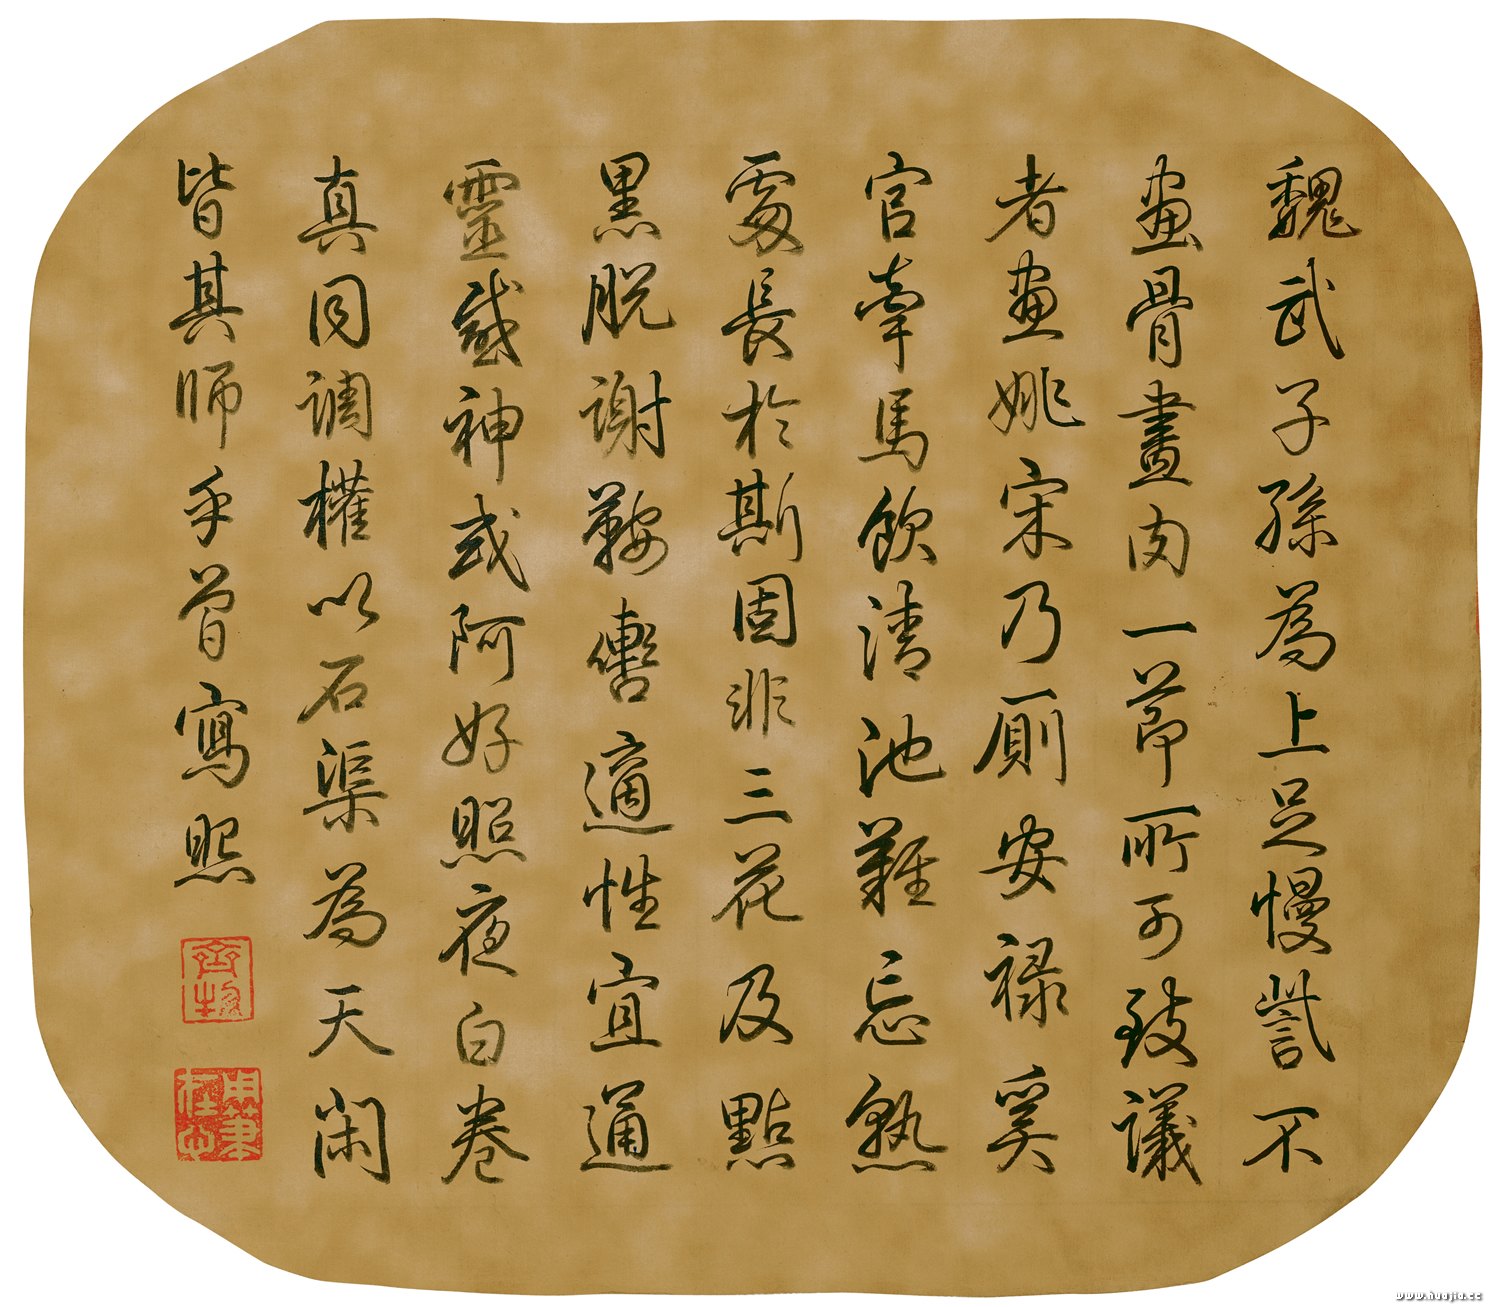 魏武子孫為上足慢訾不
畫骨畫肉一節所可致議
者畫姚宋乃厠安禄奚
官牽馬飲清池難忘熟
處長於斯固非三花及點
黑脱謝鞍轡適性宜通
靈感神或阿好照夜白卷
真同調權以石渠為天閑
皆其師乎曾寫照
齊物
用筆在心
www.huajia.cc